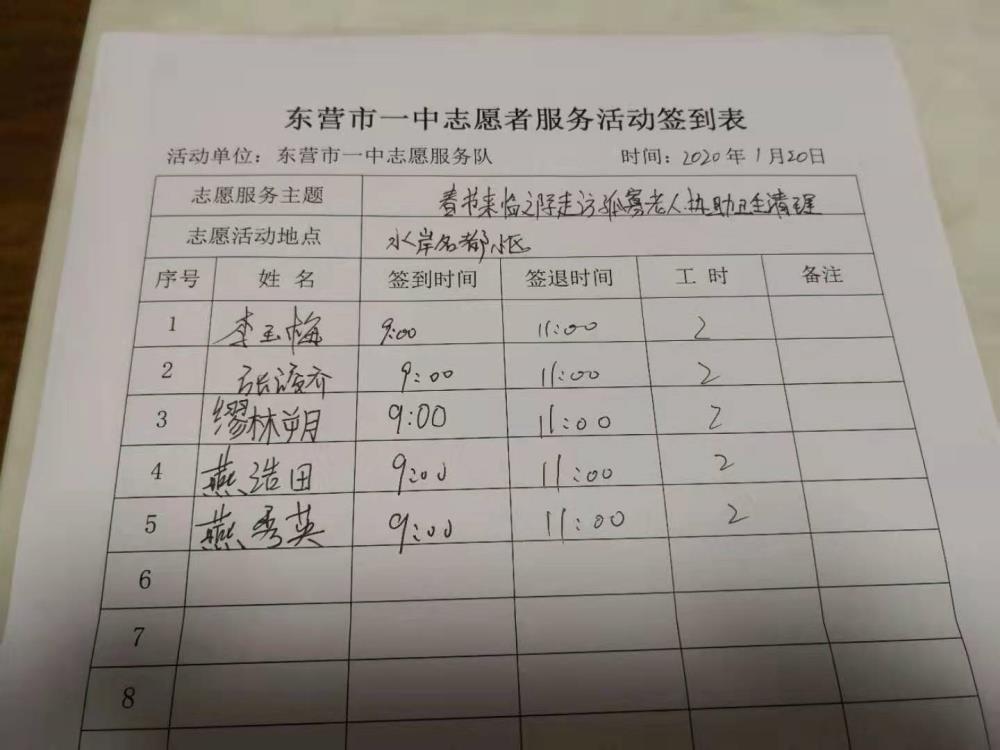 东营市一中志愿者服务活动签到表
活动单位：东营市一中志愿服务队 时间：2020年1月20日
志愿服务主题 春节来临之际走访孤寡老人协助卫生清理
志愿活动地点 水岸名都小区
序号 姓名 签到时间 签退时间 工时 备注
1 李玉梅 9:00 11:00 2
2 张 齐 9:00 11:00 2
3 缪林朔 9:00 11:00 2
4 燕浩田 9:00 11:00 2
5 燕秀英 9:00 11:00 2
6
7
8